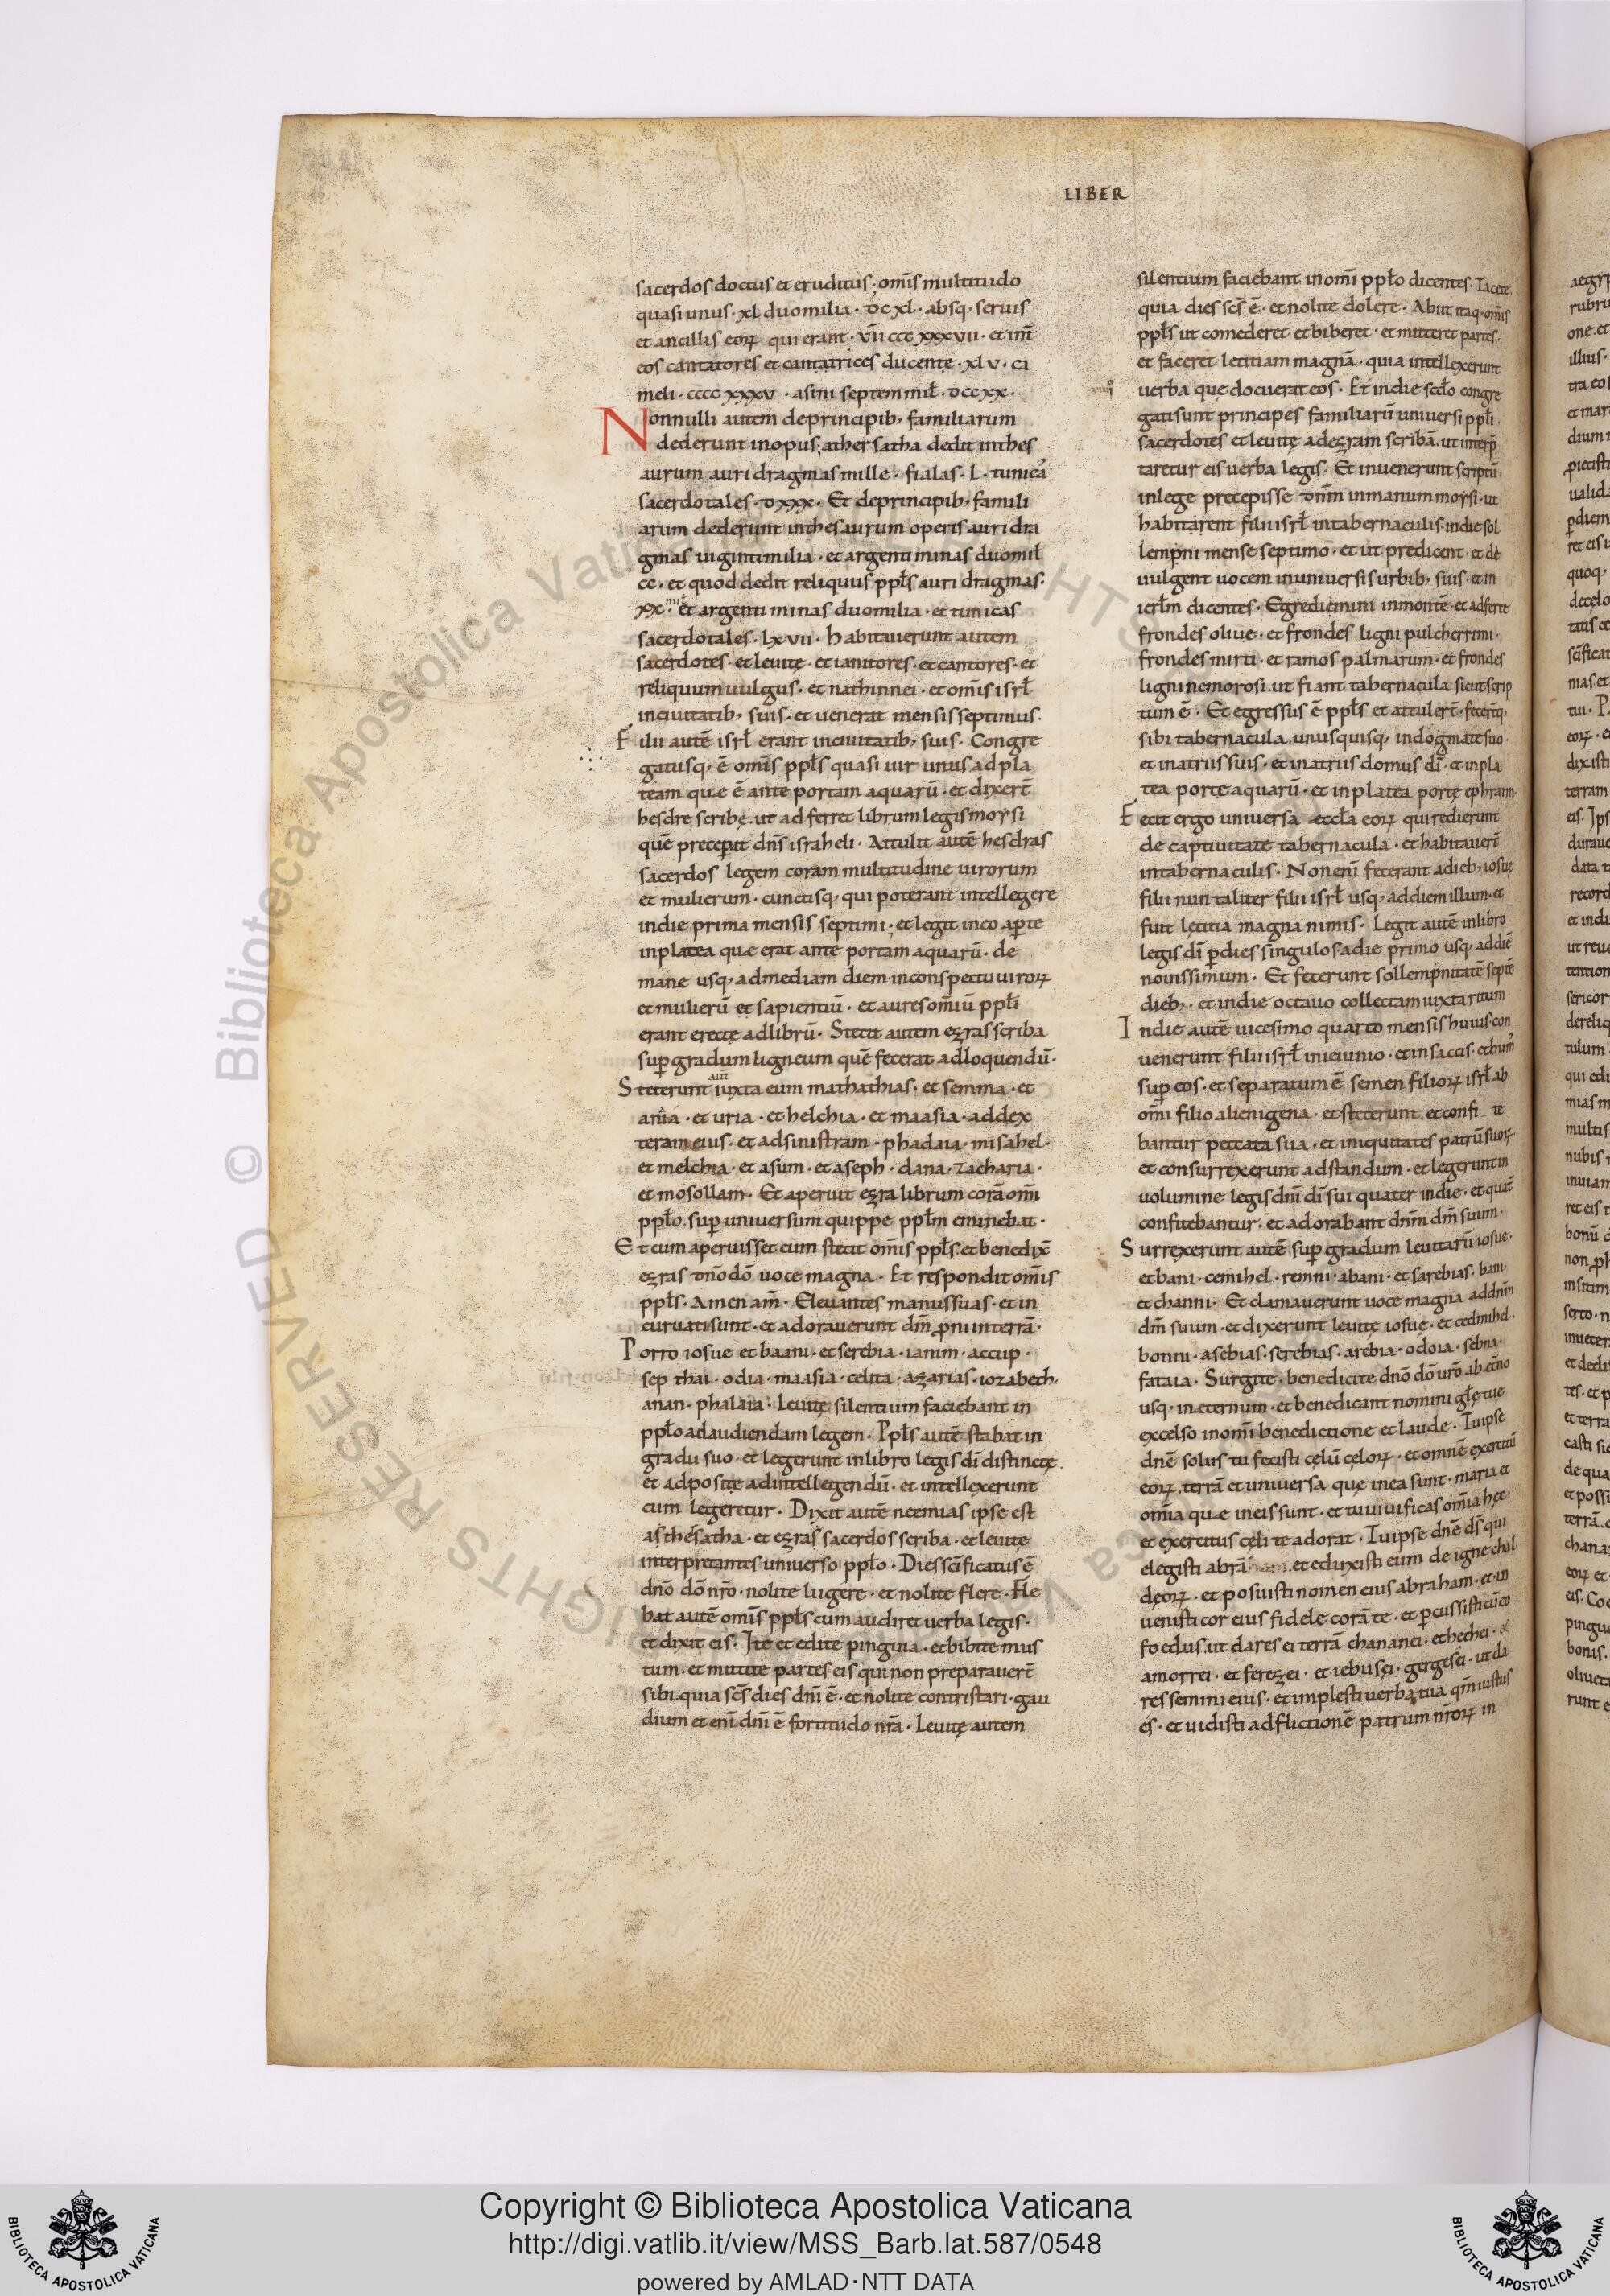 LIBER
sacerdos doctus et eruditus; om̄is multitudo
quasi unus · xl duomilia · DC xl · absq; seruis
et ancillis eoꝝ qui erant · vii ccc xxxvii · et int̄
eos cantatores et cantatrices ducentę · xl v · ca
meli · cccc xxxv · asini septem mił · DCC XX ·
Nonnulli autem de principib; familiarum
dederunt in opus; athersatha dedit in thes
aurum auri dragmas mille · fialas · L · tunicas
sacerdotales · D XXX · Et de principib; famili
arum dederunt in thesaurum operis auri dra
gmas uiginti milia · et argenti minas duo mił
cc · et quod dedit reliquus ppłs auri dragmas ·
xx · mił et argenti minas duomilia · et tunicas
sacerdotales · lxvii · habitauerunt autem
sacerdotes · et leuitę · et ianitores · et cantores · et
reliquum uulgus · et nathinnei · et om̄is isrł
in ciuitatib; suis · et uenerat mensis septimus ·
Filii autē isrł erant in ciuitatib; suis · Congre
gatusq; ē om̄is ppłs quasi uir unus ad pla
team quę ē ante portam aquarū · et dixer̄t
hesdre scribę · ut adferret librum legis moysi
quē preceperat dn̄s israheli · Attulit autē hesdras
sacerdos legem coram multitudine uirorum
et mulierum · cunctisq; qui poterant intellegere
in die prima mensis septimi · et legit in eo aꝑte
in platea quę erat ante portam aquarū · de
mane usq; ad mediam diem · in conspectu uiroꝝ
et mulierū et sapientiū · et aures om̄iū ppłi
erant erectę ad librū · Stetit autem ezras scriba
suꝑ gradum ligneum quē fecerat ad loquendū ·
Steterunt aut̄ iuxta eum mathathias · et semma · et
ania · et uria · et helchia · et maasia · ad dex
teram eius · et ad sinistram · phadaia · misahel ·
et melchia · et asum · et aseph · dana · zacharia ·
et mosollam · Et aperuit ezra librum corā om̄i
ppło · suꝑ uniuersum quippe ppłm eminebat ·
Et cum aperuisset eum stetit om̄is ppłs · et benedix̄
ezras dn̄o dō uoce magna · Et respondit om̄is
ppłs · Amen am̄ · Eleuantes manus suas · et in
curuati sunt · et adorauerunt dm̄ ꝓni in terrā ·
Porro iosue et baani · et serebia · ianim · accup ·
sep thai · odia · maasia · celita · azarias · iozabeth ·
anan · phalaia · Leuitę silentium faciebant in
ppło ad audiendam legem · Ppłs autē stabat in
gradu suo · et legerunt in libro legis dī distinctę ·
et adposite ad intellegendū · et intellexerunt
cum legeretur · Dixit autē neemias ipse est
asthesatha · et ezras sacerdos scriba · et leuitę
interpretantes uniuerso ppło · Dies sc̄ificatus ē
dn̄o dō nr̄o · nolite lugere · et nolite flere · Fle
bat autē om̄is ppłs cum audiret uerba legis ·
et dixit eis · Ite et edite pinguia · et bibite mus
tum · et mittite partes eis qui non preparauer̄t
sibi · quia sc̄s dies dn̄i ē · et nolite contristari · gau
dium et eni dn̄i ē fortitudo nr̄a · Leuitę autem
silentium faciebant in om̄i ppło dicentes · Tacete ·
quia dies sc̄s ē · et nolite dolere · Abiit itaq; om̄is
ppłs ut comederet et biberet · et mitteret partes ·
et faceret letitiam magnā · quia intellexerunt
uerba que docuerat eos · Et in die scd̄o congre
gati sunt principes familiarū uniuersi ppłi ·
sacerdotes et leuitę ad ezram scribā · ut interp̄
taretur eis uerba legis · Et inuenerunt scriptū
in lege precepisse dn̄m in manum moysi · ut
habitarent filii isrł in tabernaculis · in die sol
lempni mense septimo · et ut predicent · et de
uulgent uocem in uniuersis urbib; suis · et in
ierłm dicentes · Egredemini in monte · et adferte
frondes oliue · et frondes ligni pulcherrimi ·
frondes mirti · et ramos palmarum · et frondes
ligni nemorosi · ut fiant tabernacula sicut scrip
tum ē · Et egressus ē ppłs et attuler̄t · fecer̄tq;
sibi tabernacula · unusquisq; in dogmate suo ·
et in atriis suis · et in atriis domus dī · et in pla
tea portę aquarū · et in platea portę ephraim ·
Fecit ergo uniuersa aeccła eoꝝ qui redierunt
de captiuitate tabernacula · et habitauer̄t
in tabernaculis · Non enī fecerant a dieb; iosue
filii nun taliter filii isrł usq; ad diem illum · et
fuit lętitia magna nimis · Legit autē in libro
legis dī ꝑ dies singulos · a die primo usq; ad diē
nouissimum · Et fecerunt sollempnitatē septē
dieb; · et in die octauo collectam iuxta ritum ·
In die autē uicesimo quarto mensis huius · con
uenerunt filii isrł in ieiunio · et in saccis · et hum̄
suꝑ eos · et separatum ē semen filioꝝ isrł ab
om̄i filio alienigena · et steterunt · et confi te
bantur peccata sua · et iniquitates patrū suoꝝ ·
et consurrexerunt ad standum · et legerunt in
uolumine legis dn̄i dī sui quater in die · et quat̄
confitebantur · et adorabant dn̄m dm̄ suum ·
Surrexerunt autē suꝑ gradum leuitarū iosue ·
et bani · cemihel · remni · abani · et sarebias · bani ·
et channi · Et clamauerunt uoce magna ad dn̄m
dm̄ suum · et dixerunt leuitę iosue · et cedmihel ·
bonni · asebias · serebias · arebia · odoia · sebna ·
fataia · Surgite · benedicite dn̄o dō ur̄o ab et̄no
usq; in eternum · et benedicant nomini głę tuę
excelso in om̄i benedictione et laude · Tu ipse
dn̄e solus tu fecisti cęlū cęloꝝ · et omnē exercitū
eoꝝ · terrā et uniuersa quę in ea sunt · maria et
om̄ia quę in eis sunt · et tu uiuificas om̄ia hęc ·
et exercitus cęli te adorat · Tu ipse dn̄e ds̄ qui
elegisti abrā et eduxisti eum de igne chal
deoꝝ · et posuisti nomen eius abraham · et in
uenisti cor eius fidele corā te · et ꝑcussisti cū eo
foedus · ut dares ei terrā chananei · et hethei · et
amorrei · et ferezei · et iebusei · gergesei · ut da
res semini eius · et implesti uerba tua qm̄ iustus
es · et uidisti adflictionē patrum nr̄oꝝ in
Copyright © Biblioteca Apostolica Vaticana
http://digi.vatlib.it/view/MSS_Barb.lat.587/0548
powered by AMLAD·NTT DATA